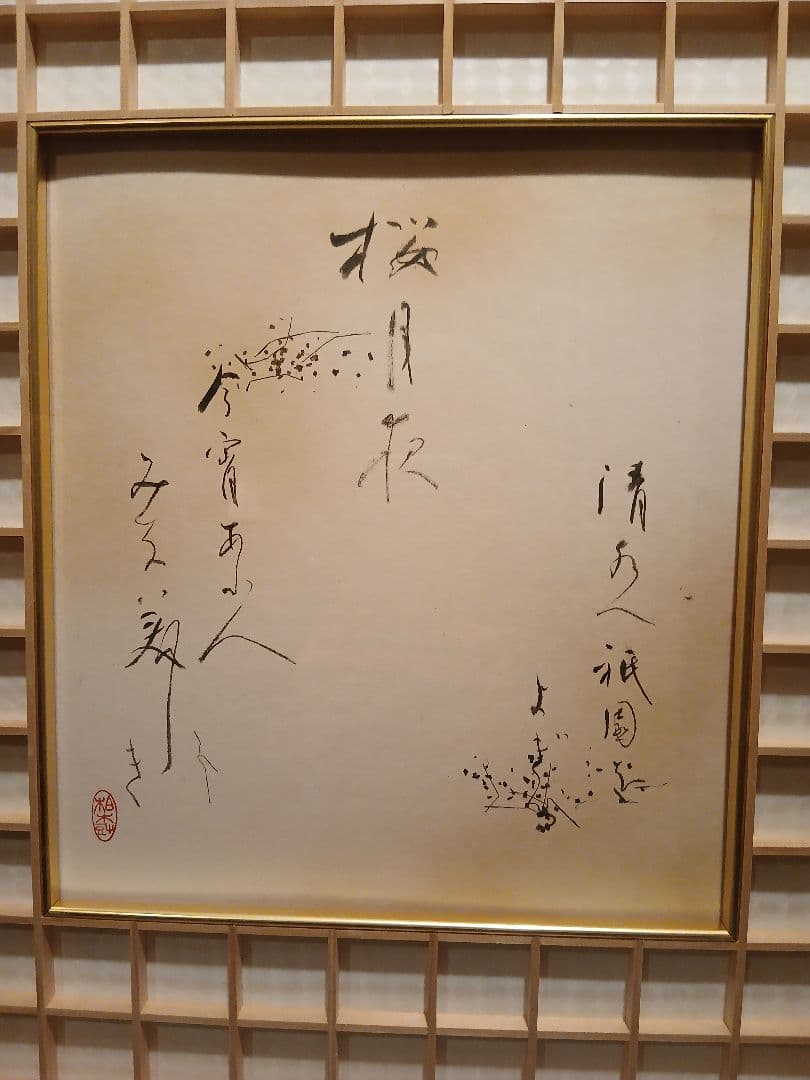 清水へ祇園を
よぎる
桜月夜
今宵あふ人
みな美し
き